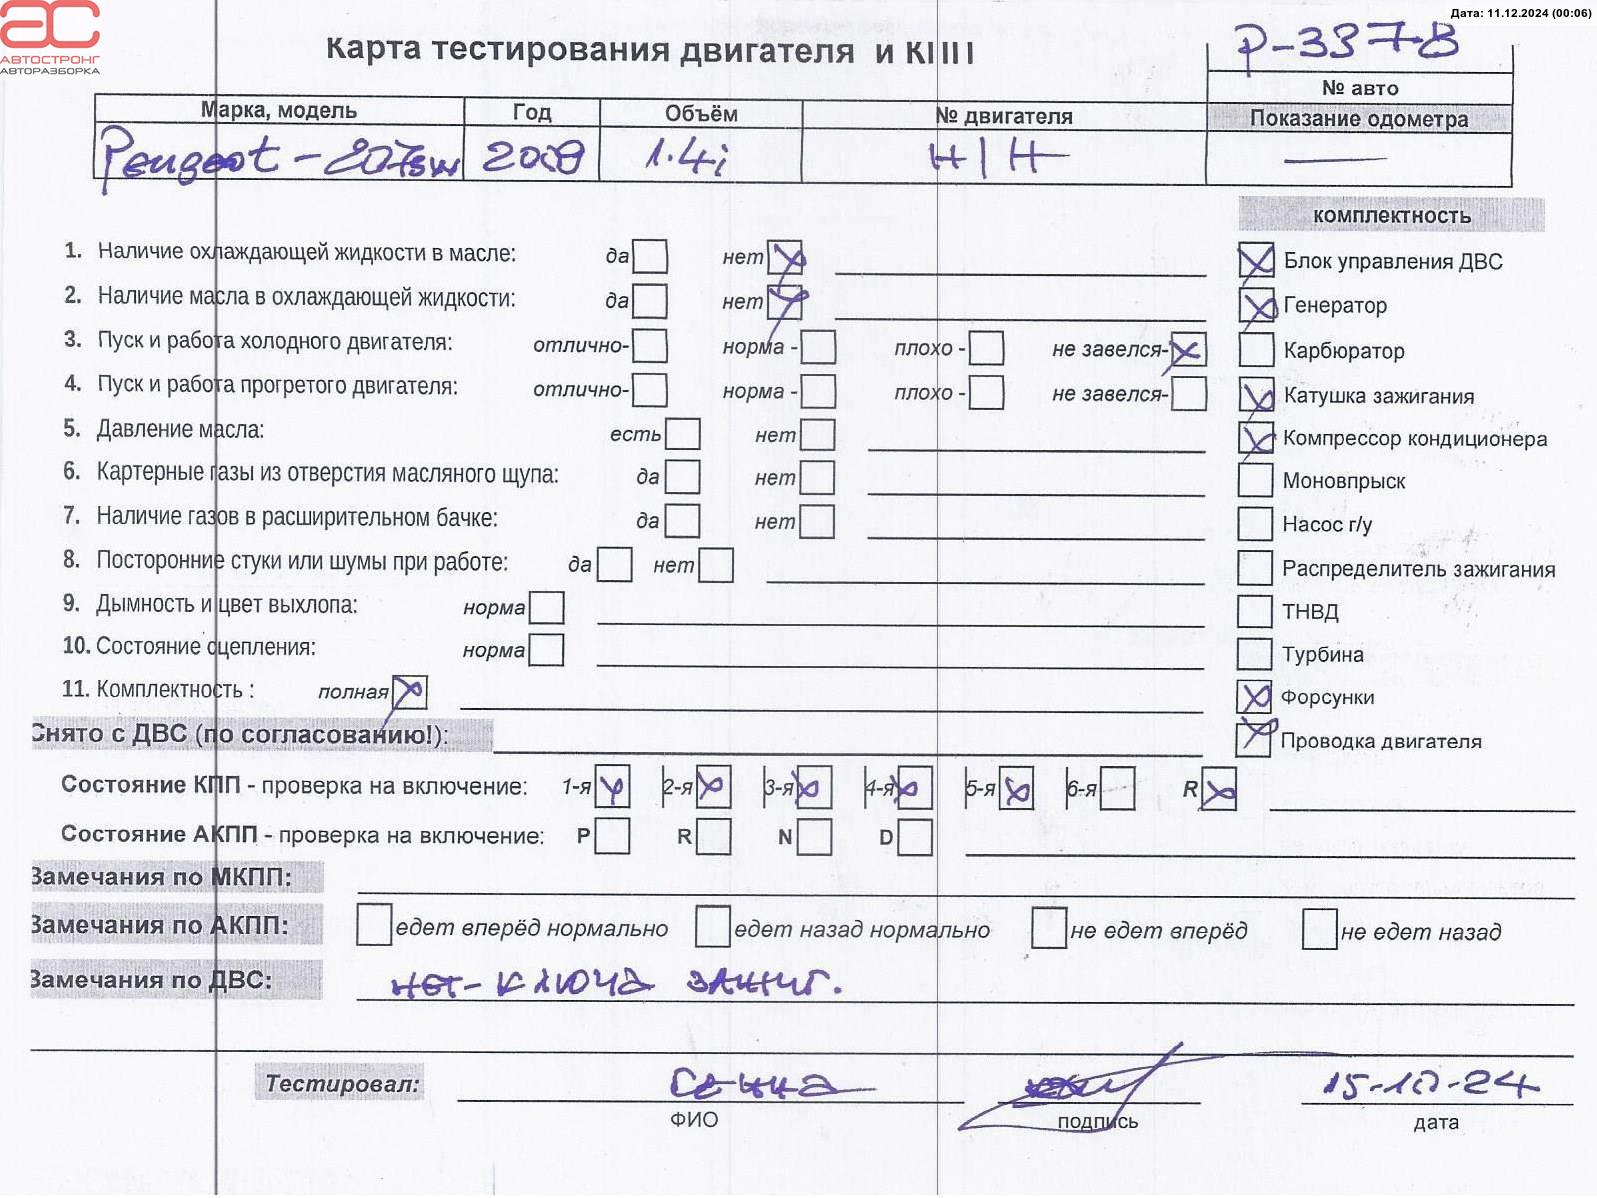 Дата: 11.12.2024 (00:06)
АС
АВТОСТРОНГ
АВТОРАЗБОРКА
Карта тестирования двигателя и КПП
P-3378
№ авто
Марка, модель Год Объём № двигателя Показание одометра
Peugeot - 207sw 2008 1.4i Н/Н —
комплектность
1. Наличие охлаждающей жидкости в масле: да нет
Блок управления ДВС
2. Наличие масла в охлаждающей жидкости: да нет
Генератор
3. Пуск и работа холодного двигателя: отлично- норма - плохо - не завелся-
Карбюратор
4. Пуск и работа прогретого двигателя: отлично- норма - плохо - не завелся-
Катушка зажигания
5. Давление масла: есть нет
Компрессор кондиционера
6. Картерные газы из отверстия масляного щупа: да нет
Моновпрыск
7. Наличие газов в расширительном бачке: да нет
Насос г/у
8. Посторонние стуки или шумы при работе: да нет
Распределитель зажигания
9. Дымность и цвет выхлопа: норма
ТНВД
10. Состояние сцепления: норма
Турбина
11. Комплектность : полная
Форсунки
Снято с ДВС (по согласованию!):
Проводка двигателя
Состояние КПП - проверка на включение: 1-я 2-я 3-я 4-я 5-я 6-я R
Состояние АКПП - проверка на включение: P R N D
Замечания по МКПП:
Замечания по АКПП: едет вперёд нормально едет назад нормально не едет вперёд не едет назад
Замечания по ДВС: нет - ключа зажиг.
Тестировал: 15-10-24
ФИО подпись дата